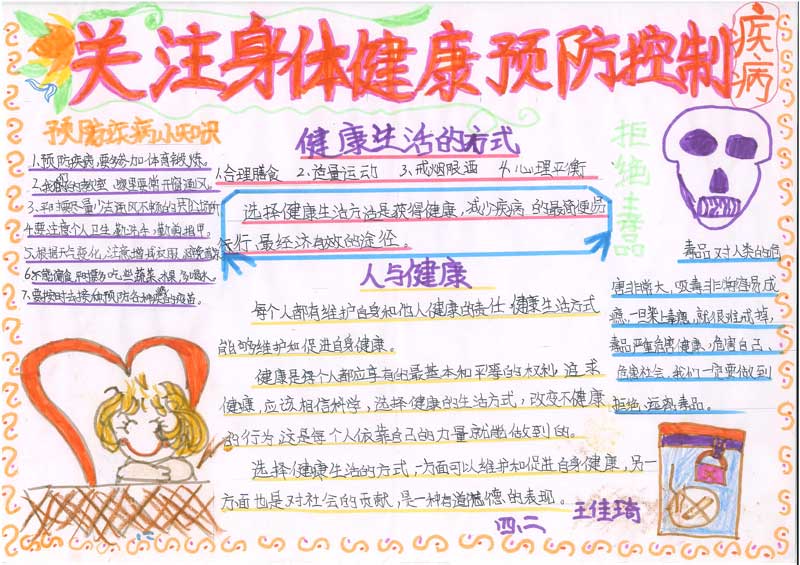 关注身体健康预防控制疾病
预防疾病小知识
1.预防疾病,要多参加体育锻炼。
2.我们的教室,寝室要常开窗通风。
3.平时要尽量少去通风不畅的
4.要注意个人卫生,勤洗手,勤剪指甲。
5.根据天气变化,注意增减衣服,
6.不能偏食,平时要多吃些蔬菜、水果,多喝水。
7.要按时去接种预防各种疾病的疫苗。
健康生活的方式
1.合理膳食 2.适量运动 3.戒烟限酒 4.心理平衡
选择健康生活方法是获得健康,减少疾病的最简便易
行,最经济有效的途径。
人与健康
每个人都有维护自身和他人健康的责任 健康生活方式
能够维护和促进自身健康。
健康是每个人都应享有的最基本和平等的权利,追求
健康,应该相信科学,选择健康的生活方式,改变不健康
的行为,这是每个人依靠自己的力量就能做到的。
选择健康生活的方式,一方面可以维护和促进自身健康,另一
方面也是对社会的贡献,是一种有道德的表现。
四、二 王佳琦
拒绝毒品
毒品对人类的危
害非常大,吸毒非常容易成
瘾,一旦染上毒瘾,就很难戒掉,
毒品严重危害健康,危害自己、
危害社会,我们一定要做到
拒绝、远离毒品。